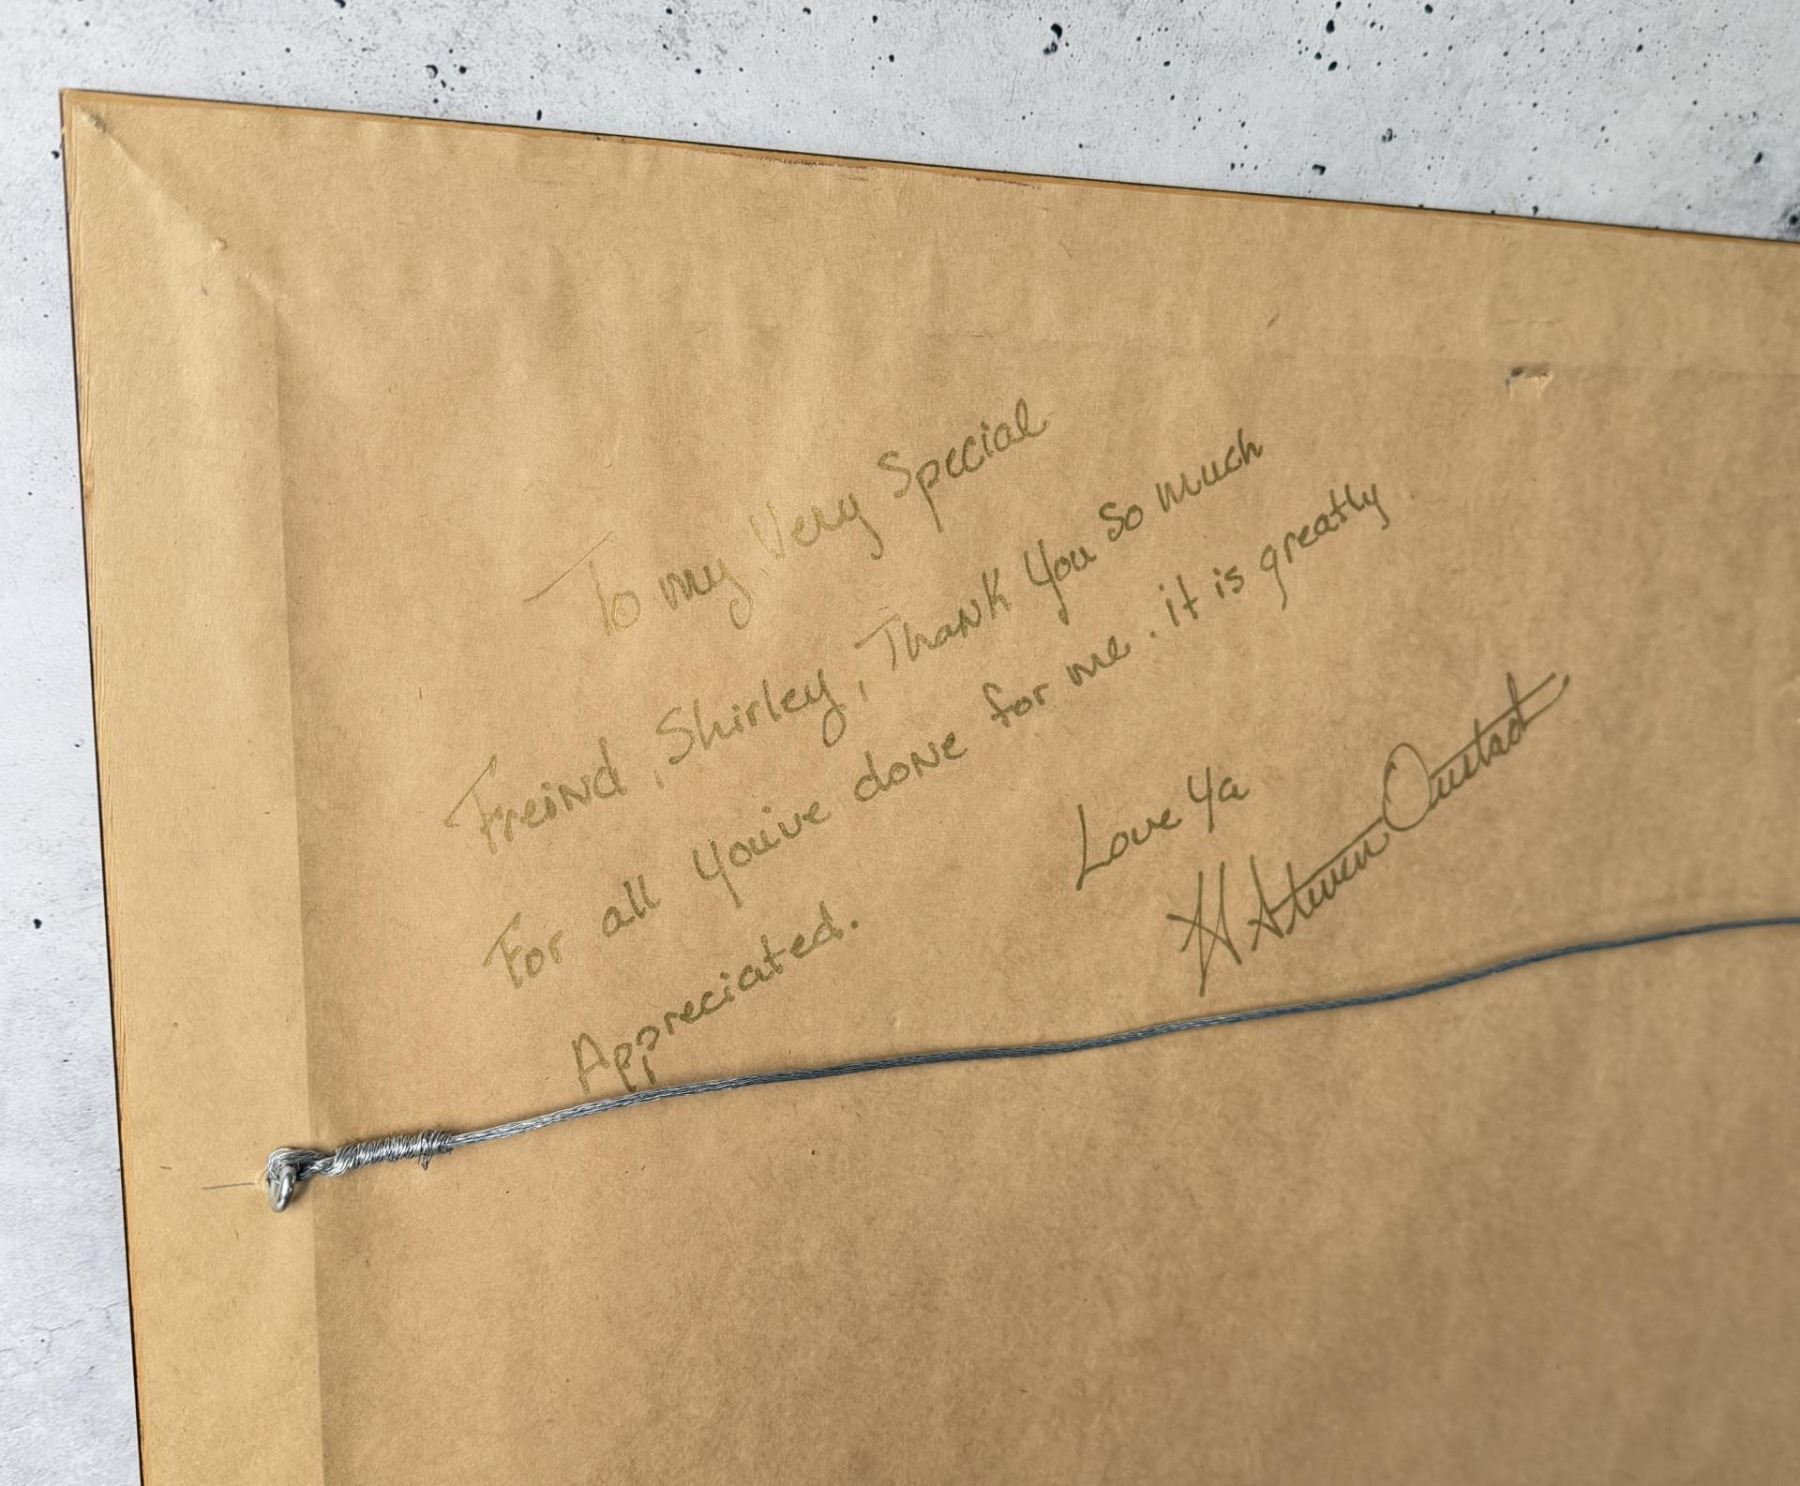 To my Very Special
Freind, Shirley, Thank you so much
For all you've done for me. it is greatly
Appreciated.
Love Ya
H Steven Oustad